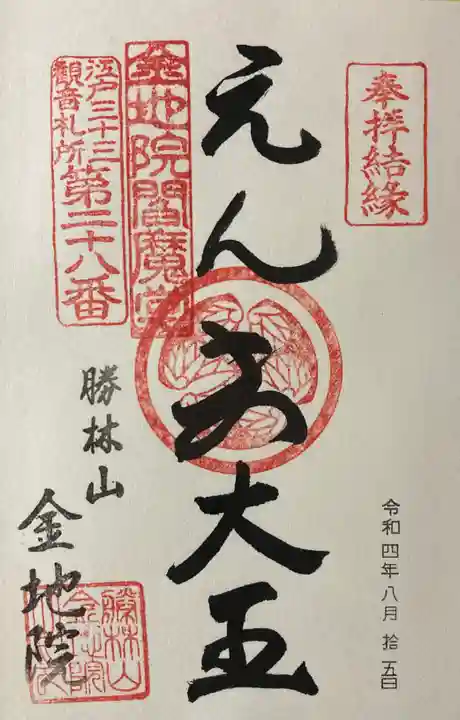 奉拝結縁
令和四年八月拾五日
えんま大王
金地院閻魔堂
江戸三十三
観音札所
第二十八番
勝林山
金地院
勝林山
金地院